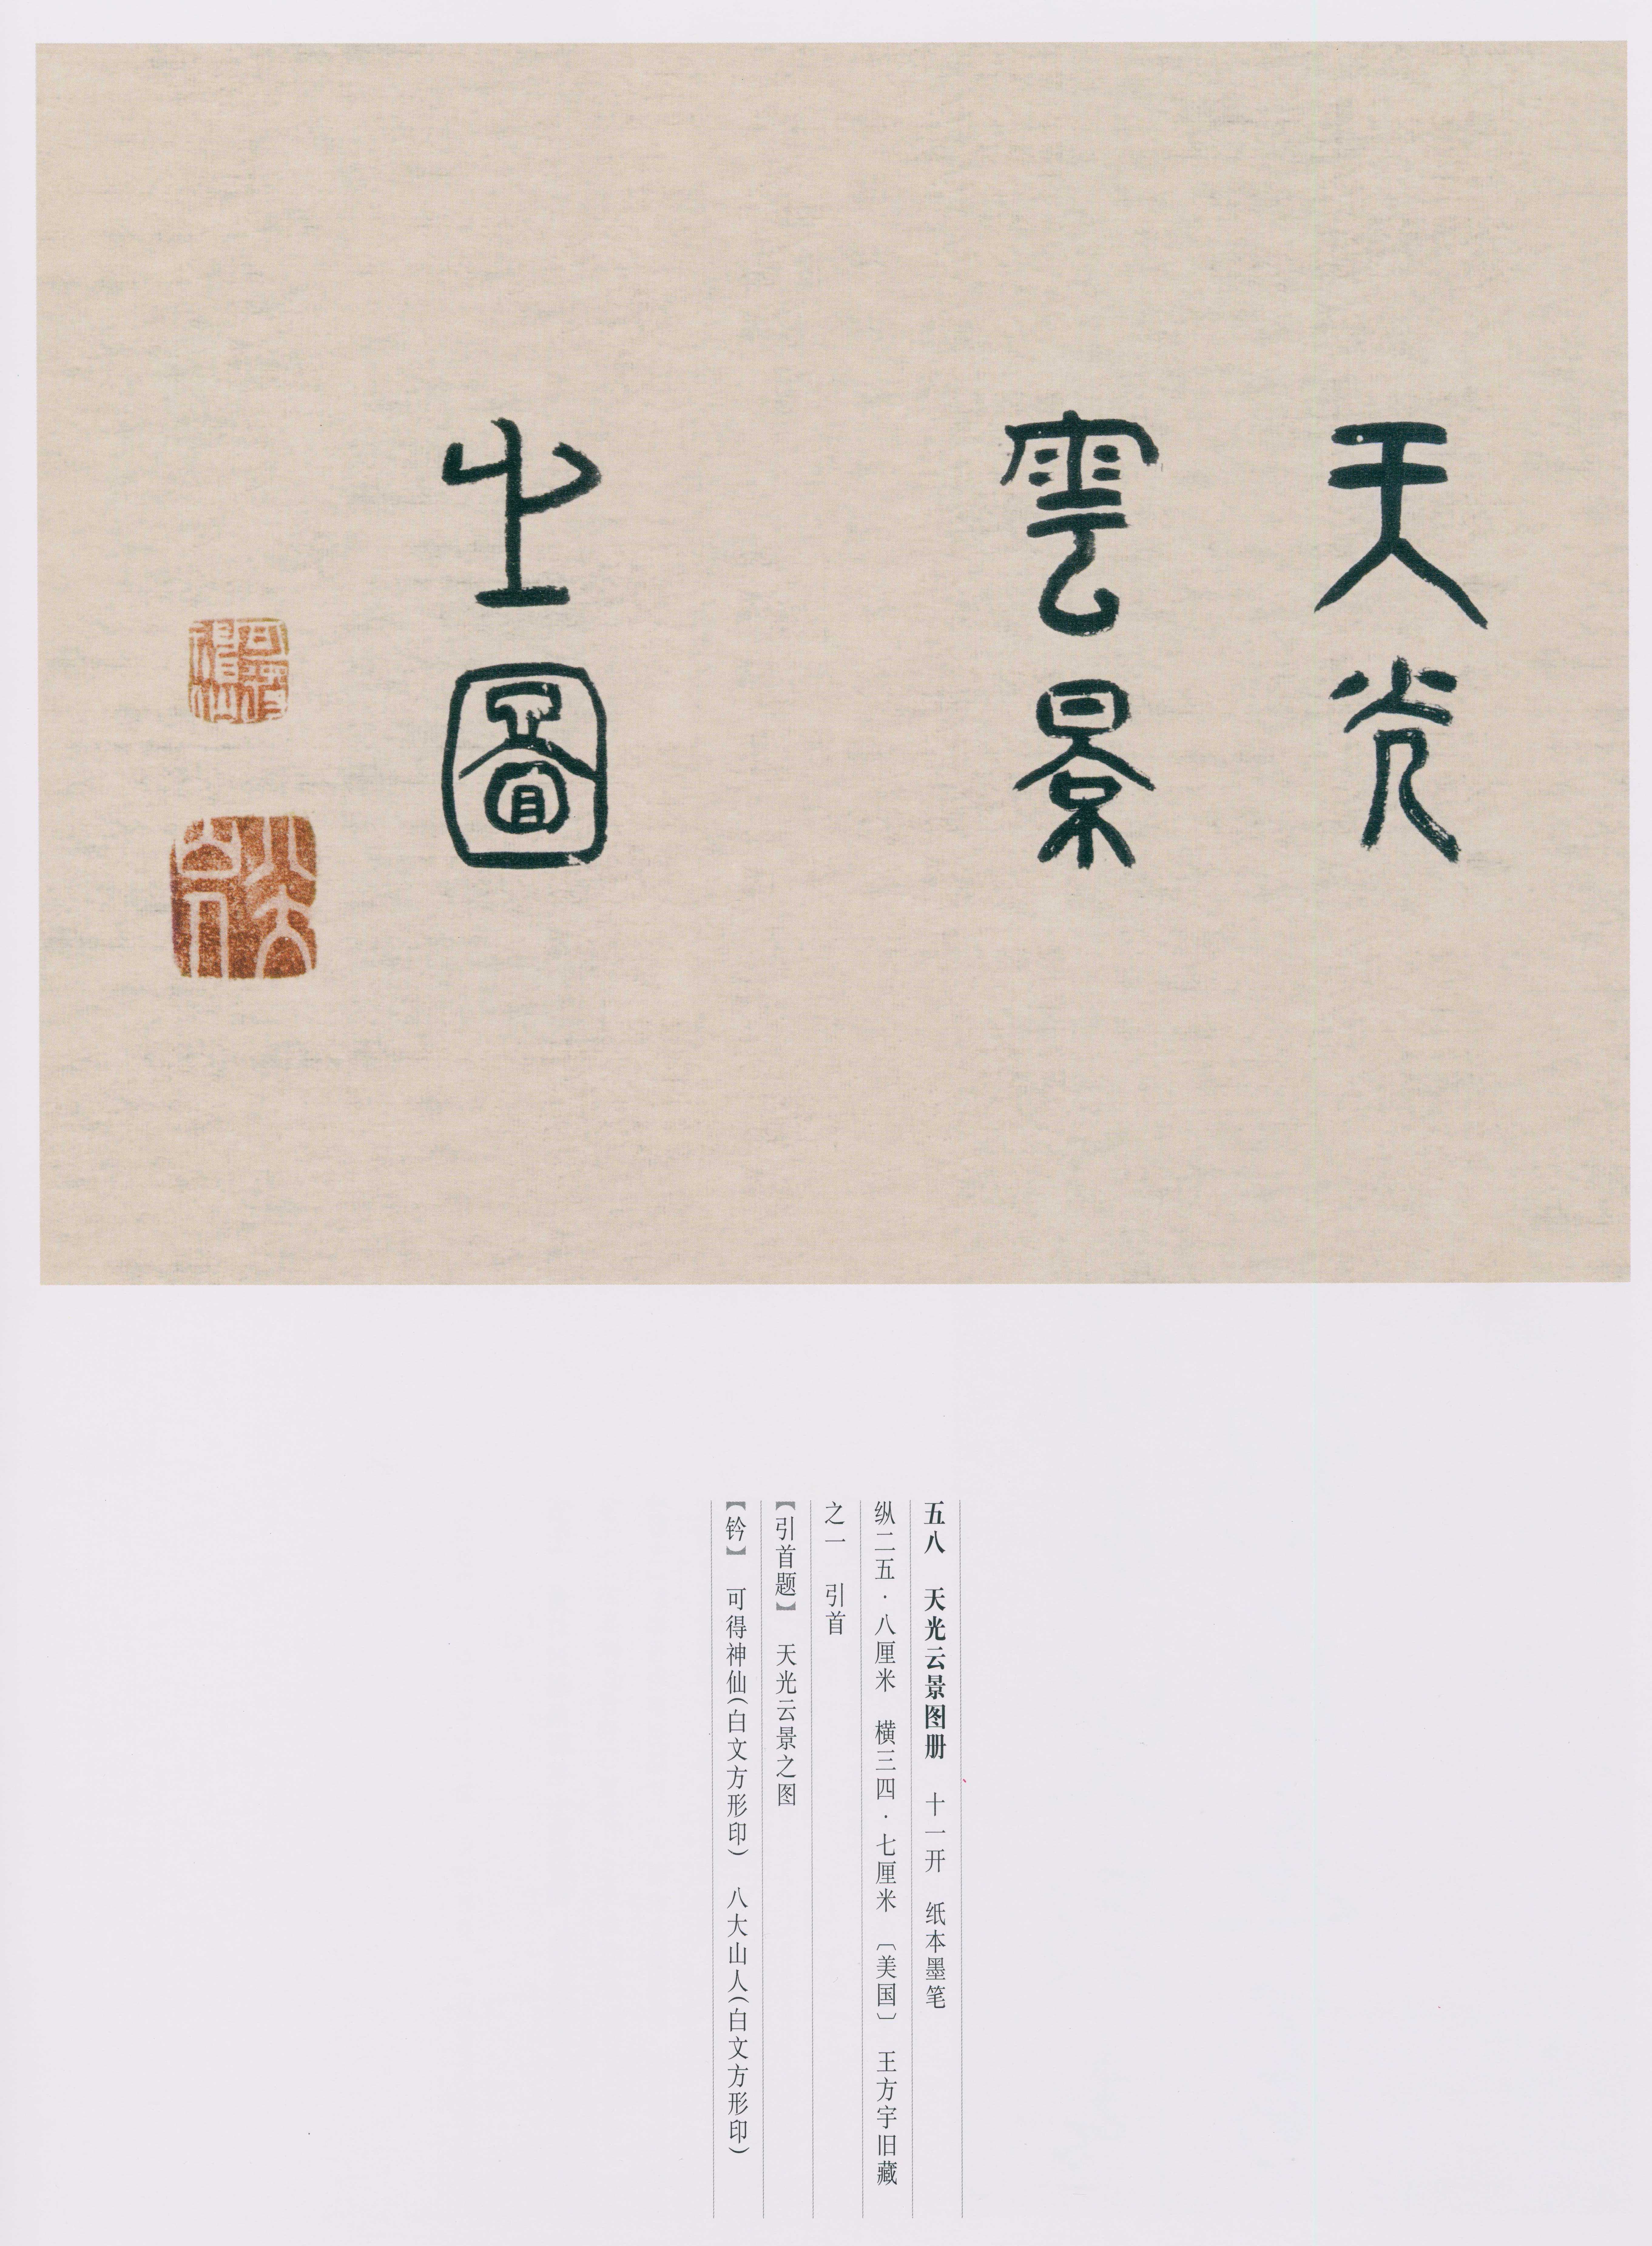 天光
雲景
之圖
可得神仙
八大山人
五八　天光云景图册　十一开　纸本墨笔
纵二五·八厘米　横三四·七厘米　〔美国〕　王方宇旧藏
之一　引首
【引首题】　天光云景之图
【钤】　可得神仙(白文方形印)　八大山人(白文方形印)